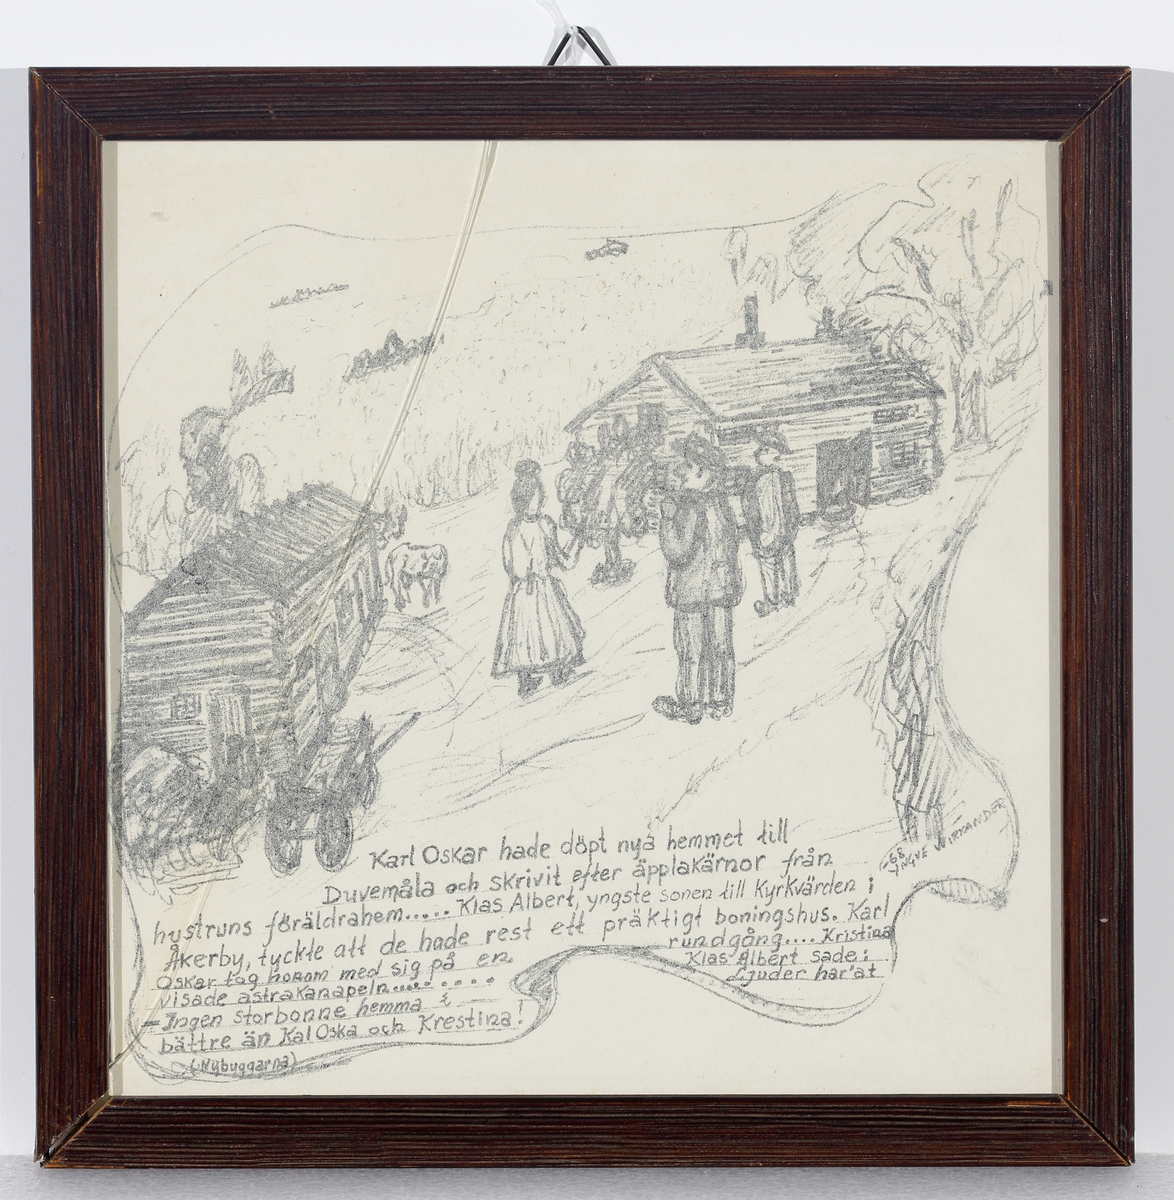 Karl Oskar hade döpt nya hemmet till
Duvemåla och skrivit efter äpplakärnor från
hustruns föräldrahem..... Klas Albert, yngste sonen till Kyrkvärden i
Åkerby, tyckte att de hade rest ett präktigt boningshus. Karl
Oskar tog honom med sig på en rundgång.... Kristina
visade astrakanapeln......... Klas Albert sade:
—Ingen storbonne hemma i Ljuder har'at
bättre än Kal Oska och Krestina!
(Nybyggarna)
-68
YNGVE WIRKANDER